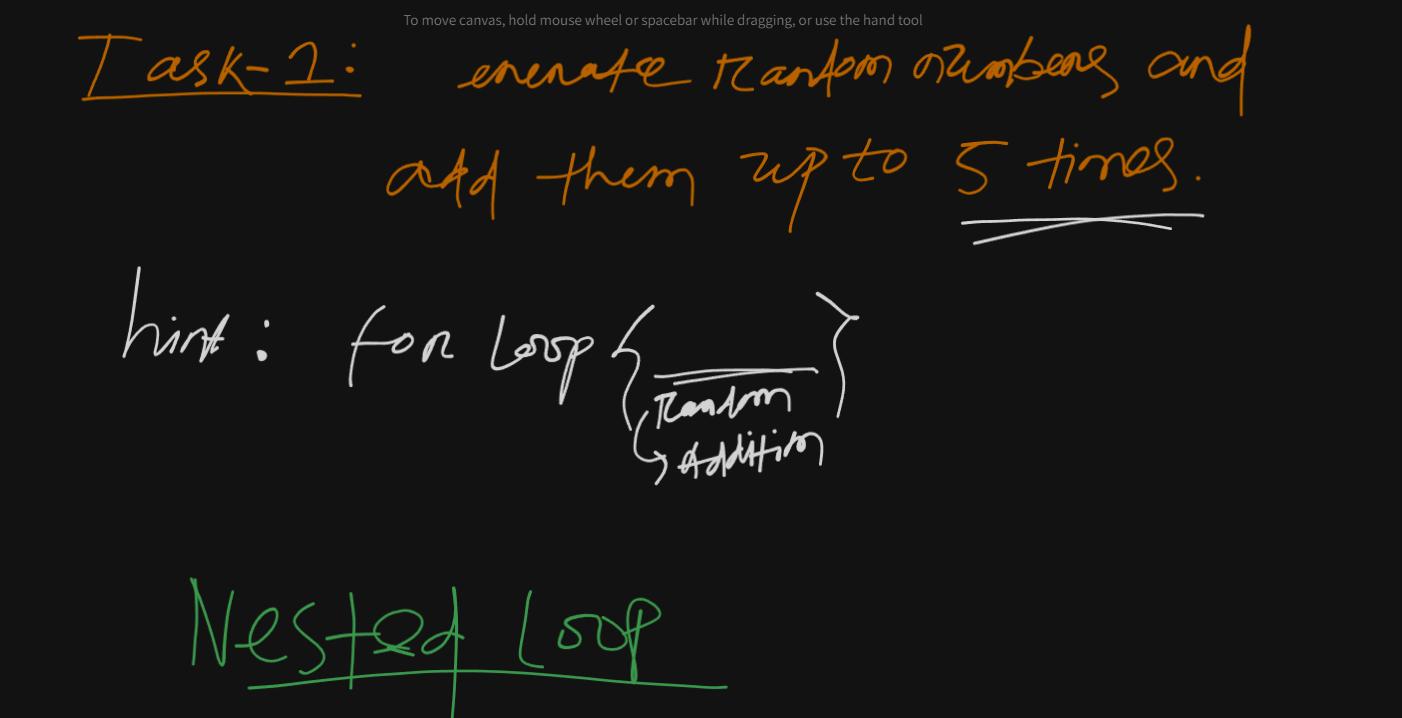 To move canvas, hold mouse wheel or spacebar while dragging, or use the hand tool
Task-1: enerate random numbers and
add them up to 5 times.
hint: for Loop {
random
Addition
}
Nested Loop